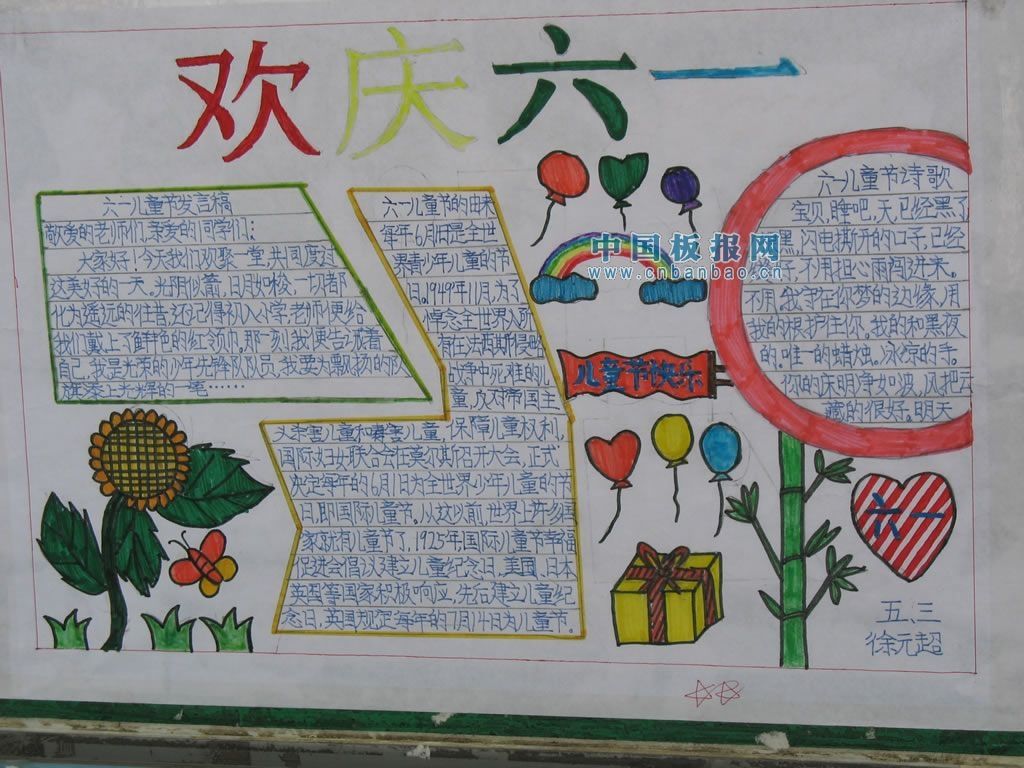 欢庆六一
六一儿童节发言稿
敬爱的老师们,亲爱的同学们:
大家好!今天我们欢聚一堂共同度过
这美好的一天。光阴似箭,日月如梭,一切都
化为遥远的往昔,还记得初入小学,老师便给
我们戴上了鲜艳的红领巾。那一刻我便告诫着
自己,我是光荣的少年先锋队队员,我要为飘扬的队
旗添上光辉的一笔……
六一儿童节的由来
每年6月1日是全世
界青少年儿童的节
日。1949年11月,为了
悼念全世界人所
有在法西斯侵略
战争中死难的儿
童,反对帝国主
义杀害儿童和毒害儿童,保障儿童权利,
国际妇女联合会在莫尔斯召开大会,正式
决定每年的6月1日为全世界少年儿童的节
日,即国际儿童节。从这以前,世界上许多国
家就有儿童节了,1925年,国际儿童节幸福
促进会倡议建立儿童纪念日,美国、日本
英国等国家积极响应,先后建立儿童纪
念日,英国规定每年的7月14日为儿童节。
中国板报网
www.cnbanbao.cn
儿童节快乐
六一儿童节诗歌
宝贝,睡吧,天,已经黑了
黑,闪电撕开的口子,已经
子,不用担心雨闯进来。
不用。我守在你梦的边缘,用
我的根护住你。我的和黑夜
的唯一的蜡烛。冰凉的手。
你的床明净如波,风把云
藏的很好。明天
六一
五、三
徐元超